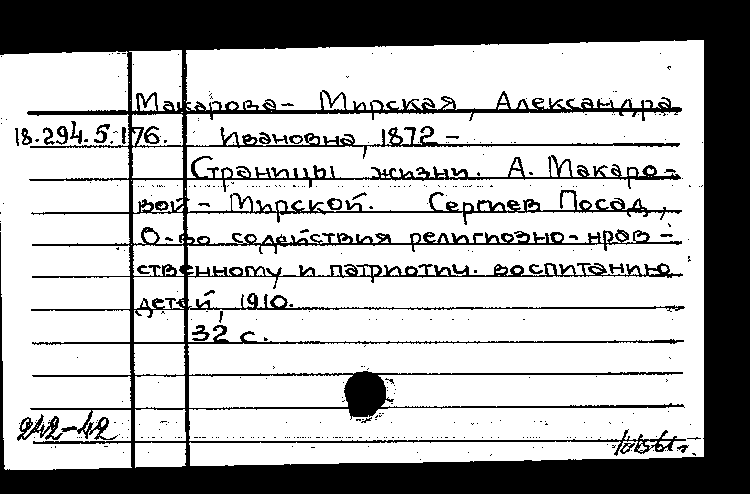 Макарова- Мирская, Александра
18.294.5.176. Ивановна, 1872 -
Страницы жизни. А. Макаро-
вой - Мирской. Сергиев Посад,
О-во содействия религиозно-нрав-
ственному и патриотич. воспитанию
детей, 1910.
32 с.
242-42